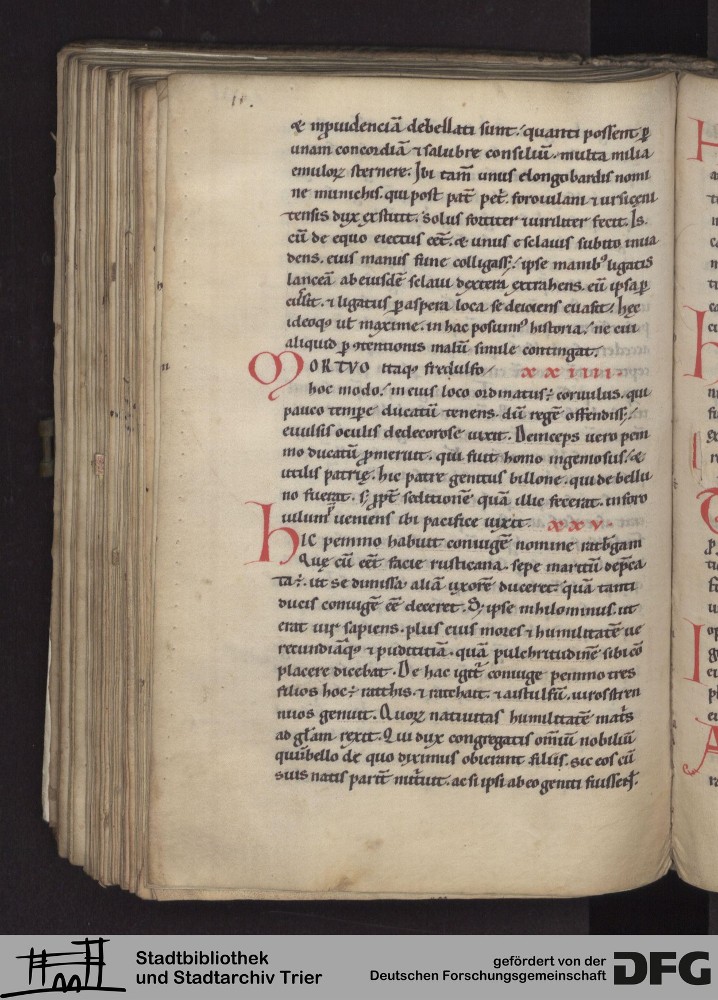 11.
& inpuidenciā debellati sunt. quanti possent p̱
unam concordiā ⁊ salubre consiliū. multa milia
emuloꝝ sternere. Ibi tam̄ unus e longobardis nomi
ne munichis. qui post pat̄ pet̄. foroiulani ⁊ ursiceni
tensis dux exstitit. solus fortiter ⁊ uiriliter fecit. Is.
cū de equo eiectus eēt. & unus e sclauis subito inua
dens. eius manus fune colligass;. ipse manibꝰ ligatis
lanceā ab eiusdē sclaui dextera extrahens. eū ipsa p̱
cussit. ⁊ ligatus p̱ aspera loca se deiciens euasit. hec
ideoqꝫ ut̄ maxime. in hac posuimꝰ historia. ne cui
aliquid p̱ ↄtentionis malū simile contingat.
MORTVO itaqꝫ fredulfo xxiiii.
hoc modo. in eius loco ordinatus; coruulus. qui
pauco temp̱e ducatū tenens. dū regē offendiss;.
euulsis oculis dedecorose uixit. Deinceps uero pem
mo ducatū p̱meruit. qui fuit homo ingeniosus. &
utilis patrię. hic patre genitus billone. qui de bellu
no fuerat. s; p̱pt̄ seditionē quā illic fecerat. in foro
iulium ueniens ibi pacifice uixit. xxv.
HIC pemmo habuit coniugē nomine ratb̄gam
Quę cū eēt facie rusticana. sepe maritū dep̱ca
ta;. ut se dimissa aliā uxorē duceret quā tanti
ducis coniugē eē deceret. S; ipse nihilominus. ut
erat uir sapiens. plus eius mores ⁊ humilitatē ue
recundiāqꝫ ⁊ pudititiā. quā pulchritudinē sibi cō
placere dicebat. De hac igit̄ coniuge pemmo tres
filios hoc; ratthis. ⁊ ratchait. ⁊ aistulfū. uiros stren
nuos genuit. Quoꝝ natiuitas humilitatē mat̄s
ad gl̄am rexit. Qui dux congregatis om̄iū nobiliū
qui ī bello de quo diximus obierant filiis. sic eos cū
suis natis parit̄ nut̄uit. ac si ipsi ab eo geniti fuissent.
Stadtbibliothek
und Stadtarchiv Trier
gefördert von der
Deutschen Forschungsgemeinschaft
DFG